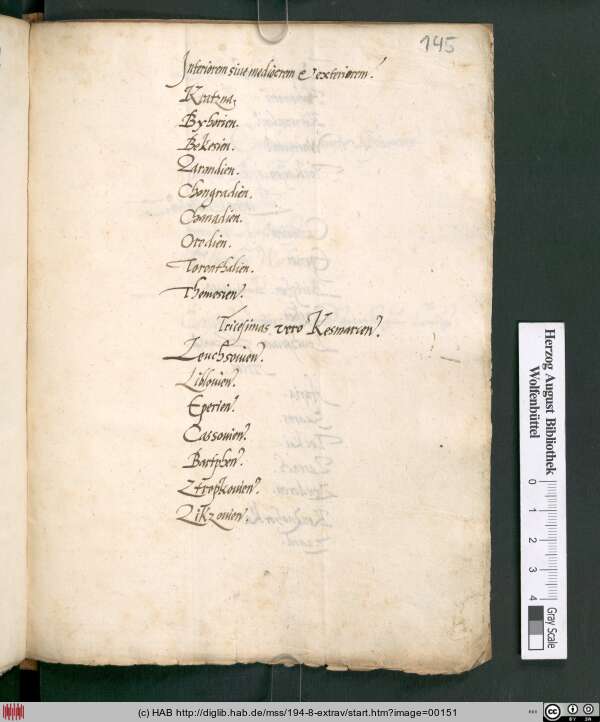 145
Interiorem siue mediocrem et exteriorem.
Kratzna,
Byhorien.
Bekesien.
Zarandien.
Chongradien.
Chanadien.
Orodien.
Toronthalien.
Themesien.
Tricesimas vero Kesmarcen.
Leuchsouien.
Liblouien.
Eperien.
Cassouien.
Bartphen.
Ztropkouien.
Zikzouien.
Herzog August Bibliothek
Wolfenbüttel
0 1 2 3 4
Gray Scale
(c) HAB http://diglib.hab.de/mss/194-8-extrav/start.htm?image=00151